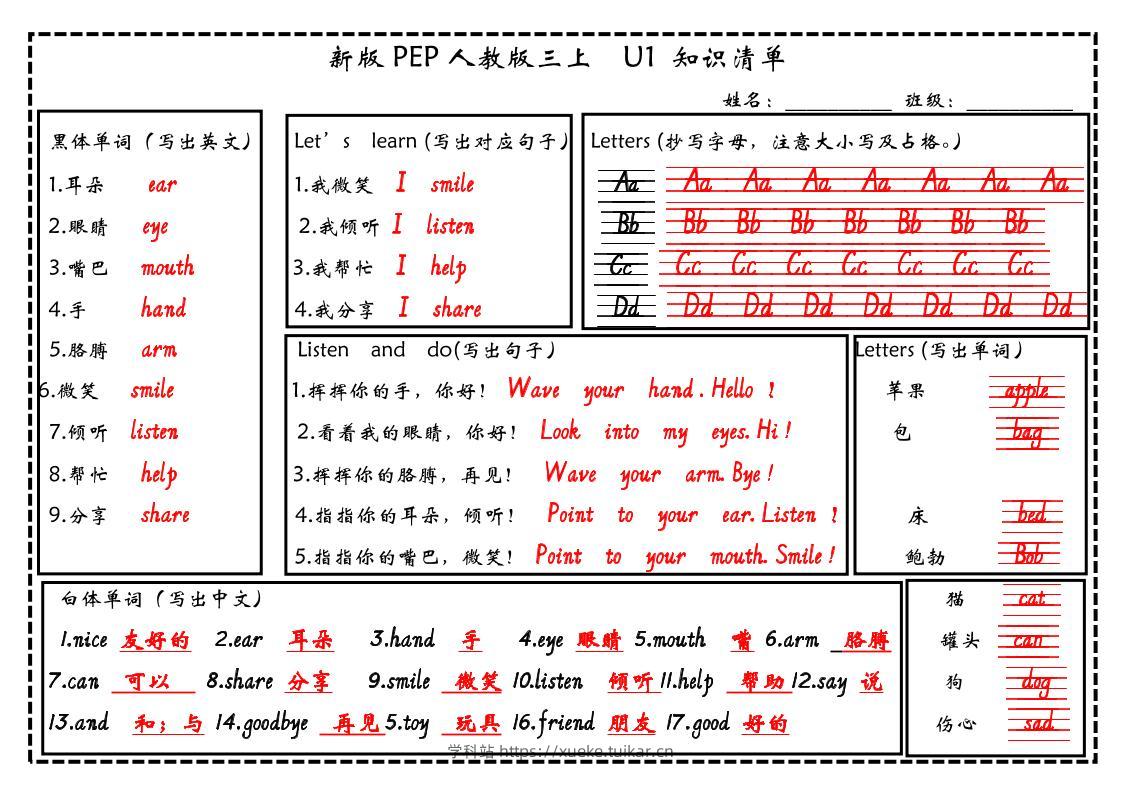 新版 PEP 人教版三上 U1 知识清单
姓名：__________ 班级：__________
黑体单词（写出英文）
1.耳朵 ear
2.眼睛 eye
3.嘴巴 mouth
4.手 hand
5.胳膊 arm
6.微笑 smile
7.倾听 listen
8.帮忙 help
9.分享 share
Let’s learn (写出对应句子)
1.我微笑 I smile
2.我倾听 I listen
3.我帮忙 I help
4.我分享 I share
Letters (抄写字母，注意大小写及占格。)
Aa Aa Aa Aa Aa Aa Aa Aa
Bb Bb Bb Bb Bb Bb Bb Bb
Cc Cc Cc Cc Cc Cc Cc Cc
Dd Dd Dd Dd Dd Dd Dd Dd
Listen and do(写出句子)
1.挥挥你的手，你好！ Wave your hand. Hello !
2.看着我的眼睛，你好！ Look into my eyes. Hi !
3.挥挥你的胳膊，再见！ Wave your arm. Bye !
4.指指你的耳朵，倾听！ Point to your ear. Listen !
5.指指你的嘴巴，微笑！ Point to your mouth. Smile !
Letters (写出单词)
苹果 apple
包 bag
床 bed
鲍勃 Bob
猫 cat
罐头 can
狗 dog
伤心 sad
白体单词（写出中文）
1.nice 友好的 2.ear 耳朵 3.hand 手 4.eye 眼睛 5.mouth 嘴 6.arm _胳膊
7.can 可以 8.share 分享 9.smile 微笑 10.listen 倾听 11.help 帮助 12.say 说
13.and 和；与 14.goodbye 再见 5.toy 玩具 16.friend 朋友 17.good 好的
学科站 https://xueke.tuikar.cn